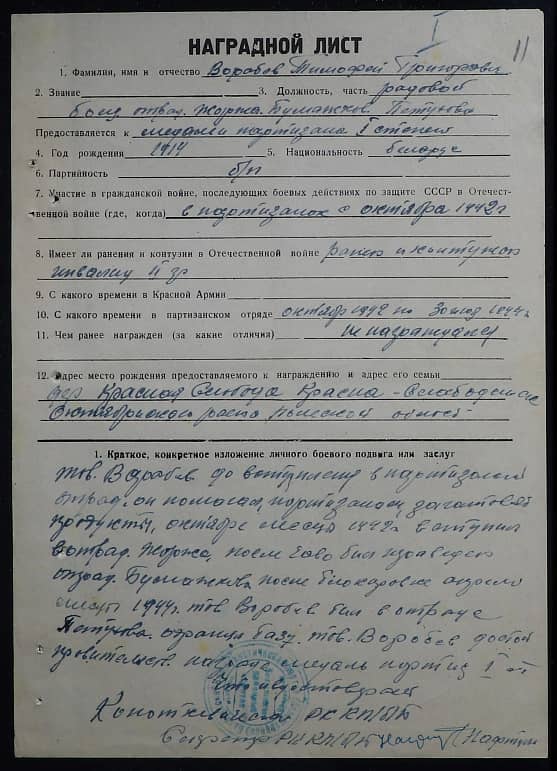 I
11
НАГРАДНОЙ ЛИСТ
1. Фамилия, имя и отчество Воробев Тимофей Григорьеви
2. Звание 3. Должность, часть рядовой
боец отряд. Жоржа. Бумажков Петухова
Предоставляется к медали партизана I степени
4. Год рождения 1914 5. Национальность беларус
6. Партийность б/п
7. Участие в гражданской войне, последующих боевых действиях по защите СССР в Отечест-
венной войне (где, когда) в партизанах с октября 1942 г
8. Имеет ли ранения и контузии в Отечественной войне ранен и контужен
инвалид II гр
9. С какого времени в Красной Армии
10. С какого времени в партизанском отряде октябр 1942 по 1944 г.
11. Чем ранее награжден (за какие отличия) не награждался
12. Адрес место рождения предоставляемого к награждению и адрес его семьи
дер Красная Слобода Красна-Слабодский
Октябрьского района Полесской област
1. Краткое, конкретное изложение личного боевого подвига или заслуг
тов. Воробев до вступления в партизаский
отряд. он помогал, партизанам заготовкой
продукты, октябре месяца 1942 г вступил
в отряд. Жоржа, после был переведен
отряд. Бумажкова после блокировке апреле
месяца 1944 г. тов Воробев был в отряде
Петухова. охранял базу. тов. Воробев достой
правительств. награде медаль партиз I ст
РК КП(б)Б
Секретарь РК КП(б)Б